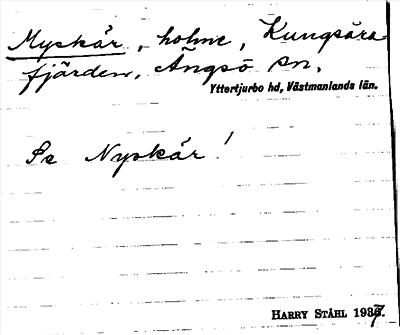 Myskär, holme, Kungsåra
fjärden, Ängsö sn.
Yttertjurbo hd, Västmanlands län.
Se Nyskär!
HARRY STÅHL 1937.